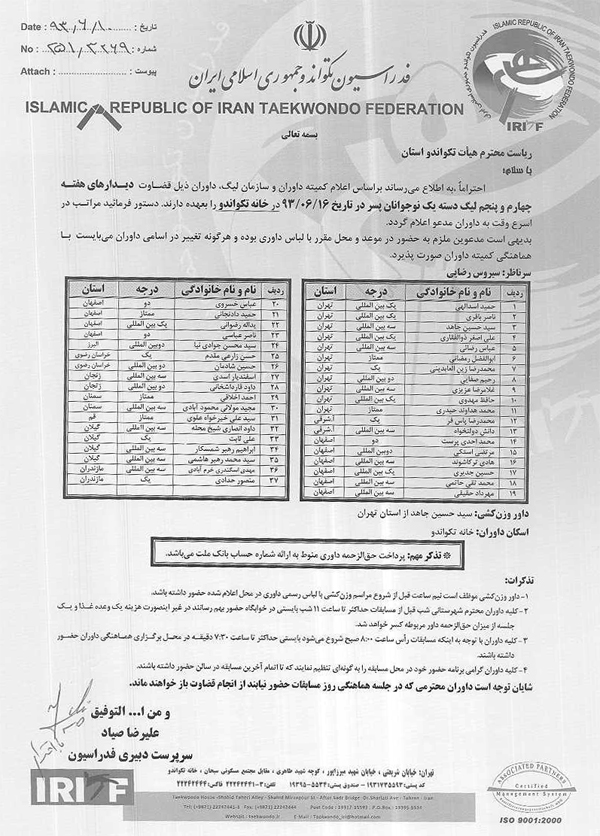 Date : ۹۳/۶/۱۰ تاریخ :
No : شماره :
Attach : پیوست :
ISLAMIC REPUBLIC OF IRAN TAEKWONDO FEDERATION
IRITF
فدراسیون تکواندو جمهوری اسلامی ایران
ISLAMIC REPUBLIC OF IRAN TAEKWONDO FEDERATION
بسمه تعالی
ریاست محترم هیأت تکواندو استان
با سلام؛
احتراماً، به اطلاع می‌رساند براساس اعلام کمیته داوران و سازمان لیگ، داوران ذیل قضاوت دیدارهای هفته
چهارم و پنجم لیگ دسته یک نوجوانان پسر در تاریخ ۹۳/۰۶/۱۶ در خانه تکواندو را بعهده دارند. دستور فرمائید مراتب در
اسرع وقت به داوران مدعو اعلام گردد.
بدیهی است مدعوین ملزم به حضور در موعد و محل مقرر با لباس داوری بوده و هرگونه تغییر در اسامی داوران می‌بایست با
هماهنگی کمیته داوران صورت پذیرد.
سرناظر: سیروس رضایی
ردیف نام و نام خانوادگی درجه استان
۱ حمید اسدالهی یک بین المللی تهران
۲ ناصر باقری یک بین المللی تهران
۳ سید حسین جاهد سه بین المللی تهران
۴ علی اصغر ذوالفقاری یک بین المللی تهران
۵ عباس رضائی سه بین المللی تهران
۶ ابوالفضل رمضانی ممتاز تهران
۷ محمدرضا زین العابدینی یک تهران
۸ رحیم صفایی دو بین المللی تهران
۹ غلامرضا عزیزی سه بین المللی تهران
۱۰ حافظ مهدوی یک بین المللی تهران
۱۱ محمد هداوند حیدری ممتاز تهران
۱۲ محمدرضا پاس فر یک آ.شرقی
۱۳ دانش دولتخواه سه بین المللی آ.شرقی
۱۴ محمد احدی پرست دو اصفهان
۱۵ مرتضی اسدکی دوبین المللی اصفهان
۱۶ هادی ترکاشوند سه بین المللی اصفهان
۱۷ حسین جدیری یک بین المللی اصفهان
۱۸ محمد تقی حاتمی سه بین المللی اصفهان
۱۹ مهرداد حقیقی سه بین المللی اصفهان
ردیف نام و نام خانوادگی درجه استان
۲۰ عباس خسروی دو اصفهان
۲۱ حمید دادنجانی ممتاز اصفهان
۲۲ یداله رضوانی یک بین المللی اصفهان
۲۳ ناصر عباسی دو اصفهان
۲۴ سید محسن جوادی نیا دوبین المللی البرز
۲۵ حسن زارعی مقدم یک خراسان رضوی
۲۶ حسین شادمان دو بین المللی خراسان رضوی
۲۷ اسفندیار اسدی سه بین المللی زنجان
۲۸ داود قارداشخانی دو بین المللی زنجان
۲۹ احمد اخلاقی ممتاز سمنان
۳۰ مجید مولائی محمود آبادی سه بین المللی سمنان
۳۱ سید علی خیرخواه علوی ممتاز قم
۳۲ داود انصاری شیخ محله سه بین المللی گیلان
۳۳ علی ثابت یک گیلان
۳۴ ابراهیم رهبر شمسکار سه بین المللی گیلان
۳۵ سید محمد رهبر هاشمی سه بین المللی گیلان
۳۶ مهدی اسکندری خرم آبادی سه بین المللی مازندران
۳۷ منصور حدادی یک مازندران
داور وزن‌کشی: سید حسین جاهد از استان تهران
اسکان داوران: خانه تکواندو
※ تذکر مهم: پرداخت حق‌الزحمه داوری منوط به ارائه شماره حساب بانک ملت می‌باشد.
تذکرات:
۱- داور وزن‌کشی موظف است نیم ساعت قبل از شروع مراسم وزن‌کشی با لباس رسمی داوری در محل اعلام شده حضور داشته باشد.
۲- کلیه داوران محترم شهرستانی شب قبل از مسابقات حداکثر تا ساعت ۱۱ شب بایستی در خوابگاه حضور بهم رسانند در غیر اینصورت هزینه یک وعده غذا و یک
جلسه از میزان حق‌الزحمه داور مربوطه کسر خواهد شد.
۳- کلیه داوران با توجه به اینکه مسابقات رأس ساعت ۸:۰۰ صبح شروع می‌شود بایستی حداکثر تا ساعت ۷:۳۰ دقیقه در محل برگزاری هماهنگی داوران حضور
داشته باشند.
۴- کلیه داوران گرامی برنامه حضور خود در محل مسابقه را به گونه‌ای تنظیم نمایند که تا اتمام آخرین مسابقه در سالن حضور داشته باشند.
شایان توجه است داوران محترمی که در جلسه هماهنگی روز مسابقات حضور نیابند از انجام قضاوت باز خواهند ماند.
و من ا... التوفیق
علیرضا صیاد
سرپرست دبیری فدراسیون
IRITF
تهران: خیابان شریعتی، خیابان شهید میرزاپور، کوچه شهید طاهری، مقابل مجتمع مسکونی سبحان، خانه تکواندو
ASSOCIATED PARTNERS
Certified
Management System
ISO 9001:2000